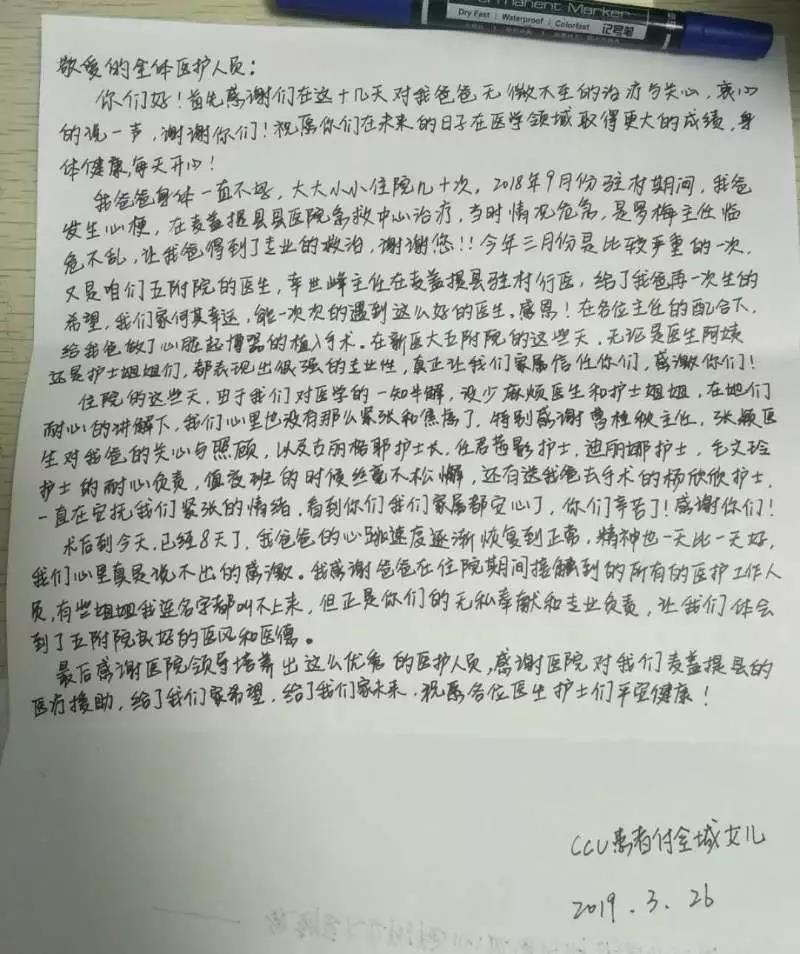 Permanent Marker
Dry Fast | Waterproof | Colorfast 记号笔
敬爱的全体医护人员：
你们好！首先感谢们在这十几天对我爸爸无微不至的治疗与关心，衷心
的说一声，谢谢你们！祝愿你们在未来的日子在医学领域取得更大的成绩，身
体健康，每天开心！
我爸爸身体一直不好，大大小小住院几十次。2018年9月份驻村期间，我爸
发生心梗，在麦盖提县县医院急救中心治疗，当时情况危急，是罗梅主任临
危不乱，让我爸得到了专业的救治，谢谢您！！今年三月份是比较严重的一次，
又是咱们五附院的医生，辛世峰主任在麦盖提县驻村行医，给了我爸再一次生的
希望，我们家何其幸运，能一次次的遇到这么好的医生。感恩！在各位主任的配合下，
给我爸做了心脏起搏器的植入手术。在新医大五附院的这些天，无论是医生阿姨
还是护士姐姐们，都表现出很强的专业性，真正让我们家属信任你们，感激你们！
住院的这些天，由于我们对医学的一知半解，没少麻烦医生和护士姐姐，在她们
耐心的讲解下，我们心里也没有那么紧张和焦虑了，特别感谢曹桂秋主任，张颖医
生对我爸的关心与照顾，以及古丽格耶护士长，任君茜影护士，迪丽娜护士，毛文玲
护士的耐心负责，值夜班的时候丝毫不松懈，还有送我爸去手术的杨欣欣护士，
一直在安抚我们紧张的情绪，看到你们我们家属都安心了，你们辛苦了！感谢你们！
术后到今天，已经8天了，我爸爸的心跳速度逐渐恢复到正常，精神也一天比一天好，
我们心里真是说不出的感激。我感谢爸爸在住院期间接触到的所有的医护工作人
员，有些姐姐我连名字都叫不上来，但正是你们的无私奉献和专业负责，让我们体会
到了五附院良好的医风和医德。
最后感谢医院领导培养出这么优秀的医护人员，感谢医院对我们麦盖提县的
医疗援助，给了我们家希望，给了我们家未来，祝愿各位医生护士们平安健康！
CCU患者付全城女儿
2019.3.26